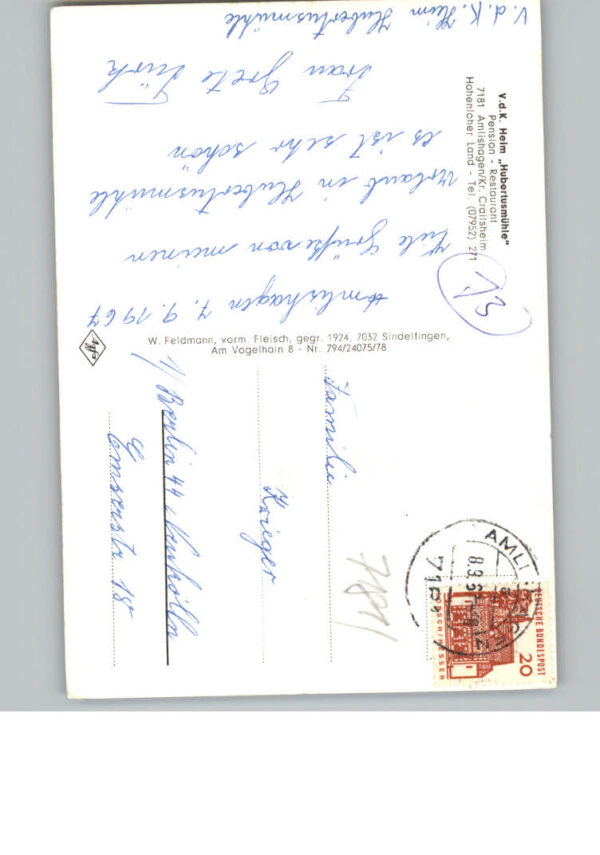 V.d.K. Heim „Hubertusmühle"
Pension - Restaurant
7181 Amlishagen/Kr. Crailsheim
Hohenloher Land - Tel. (07952) 271
13
Amlishagen 7.9.1967
Viele Grüße von meinen
Urlaub in Hubertusmühle
es ist sehr schön
Frau Grete
V.d.K. Heim Hubertusmühle
W. Feldmann, vorm. Fleisch, gegr. 1924, 7032 Sindelfingen,
Am Vogelhain 8 - Nr. 794/24075/78
Familie
Krieger
1/ Berlin 44 Neukölln
Emserstr. 18
7181
AMLI
7181
DEUTSCHE BUNDESPOST
20